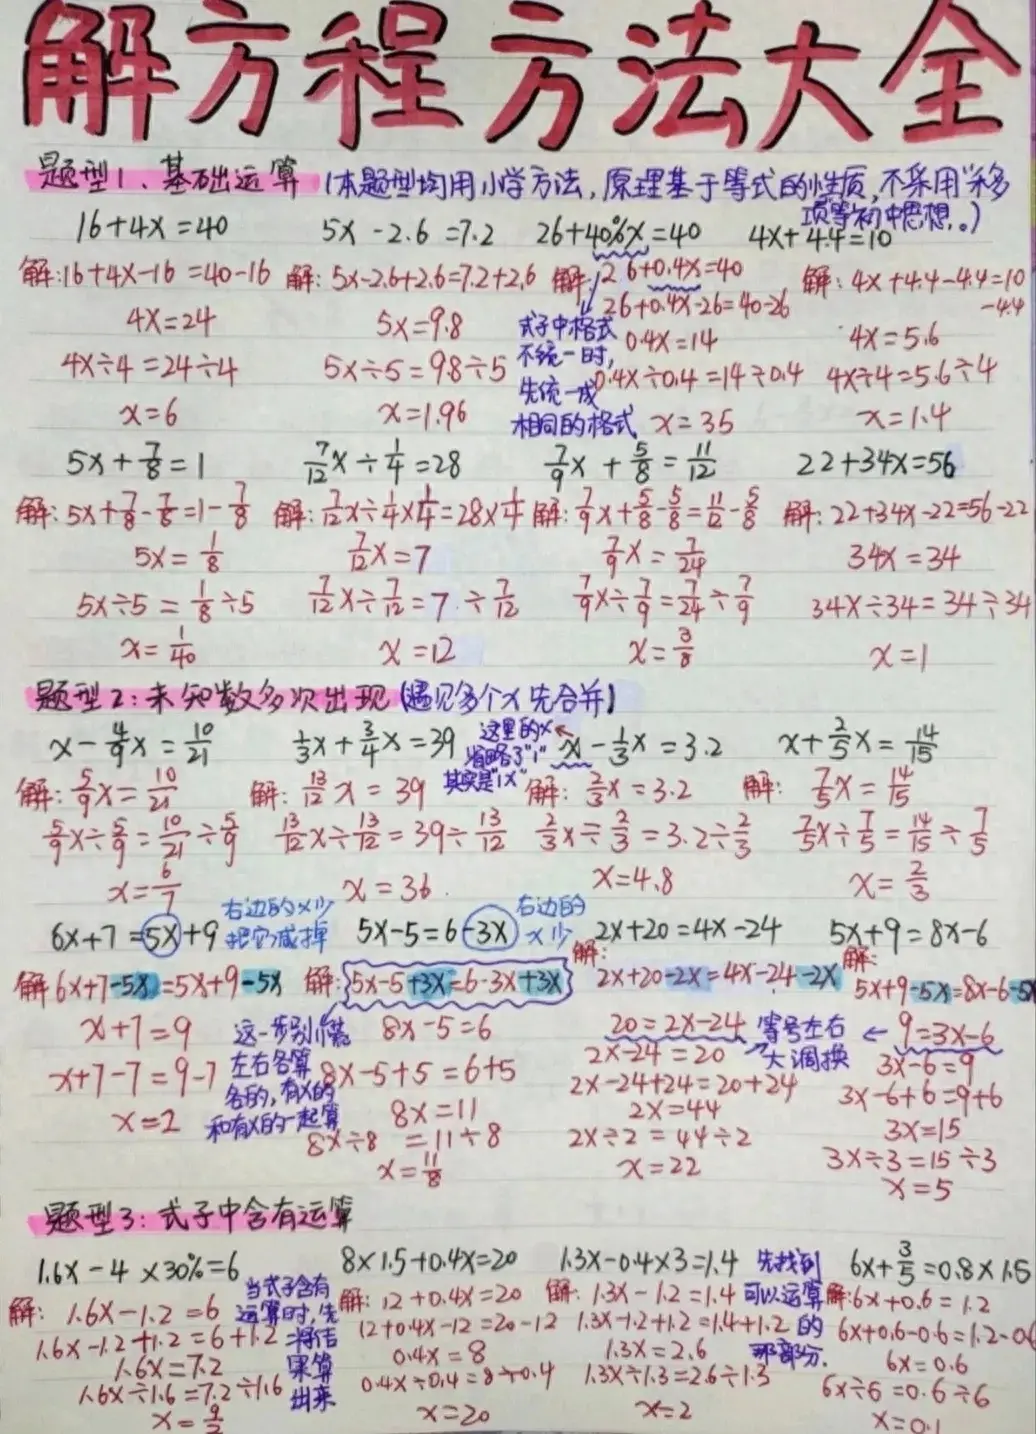 解方程方法大全
题型1、基础运算 (本题型均用小学方法,原理基于等式的性质,不采用"移多
项等初中思想。)
16+4x=40 5x-2.6=7.2 26+40%x=40 4x+4.4=10
解:16+4x-16=40-16 解:5x-2.6+2.6=7.2+2.6 解:26+0.4x=40 解:4x+4.4-4.4=10
-4.4
26+0.4x-26=40-26
4x=24 5x=9.8 式子中格式 0.4x=14 4x=5.6
4x÷4=24÷4 5x÷5=9.8÷5 不统一时, 0.4x÷0.4=14÷0.4 4x÷4=5.6÷4
先统一成
x=6 x=1.96 相同的格式 x=35 x=1.4
5x+7/8=1 7/12x÷1/4=28 7/9x+5/8=11/12 22+34x=56
解:5x+7/8-7/8=1-7/8 解:7/12x÷1/4×1/4=28×1/4 解:7/9x+5/8-5/8=11/12-5/8 解:22+34x-22=56-22
5x=1/8 7/12x=7 7/9x=7/24 34x=34
5x÷5=1/8÷5 7/12x÷7/12=7÷7/12 7/9x÷7/9=7/24÷7/9 34x÷34=34÷34
x=1/40 x=12 x=3/8 x=1
题型2:未知数多次出现(遇见多个x先合并)
x-4/9x=10/21 1/3x+3/4x=39 x-1/3x=3.2 x+2/5x=14/15
这里的x
省略了"1"
其实是"1x"
解:5/9x=10/21 解:13/12x=39 解:2/3x=3.2 解:7/5x=14/15
5/9x÷5/9=10/21÷5/9 13/12x÷13/12=39÷13/12 2/3x÷2/3=3.2÷2/3 7/5x÷7/5=14/15÷7/5
x=6/7 x=36 x=4.8 x=2/3
右边的x少
把它减掉
右边的
x少
6x+7=5x+9 5x-5=6-3x 2x+20=4x-24 5x+9=8x-6
解6x+7-5x=5x+9-5x 解:5x-5+3x=6-3x+3x 解:2x+20-2x=4x-24-2x 解:5x+9-5x=8x-6-5x
x+7=9 8x-5=6 20=2x-24 9=3x-6
这一步别慌
左右各算
各的,有x的
和有x的一起算
等号左右
大调换
2x-24=20 3x-6=9
x+7-7=9-7 8x-5+5=6+5 2x-24+24=20+24 3x-6+6=9+6
x=2 8x=11 2x=44 3x=15
8x÷8=11÷8 2x÷2=44÷2 3x÷3=15÷3
x=11/8 x=22 x=5
题型3:式子中含有运算
1.6x-4×30%=6 8×1.5+0.4x=20 1.3x-0.4×3=1.4 6x+3/5=0.8×1.5
当式子含有
运算时,先
将结
果算
出来
先找到
可以运算
的
那部分.
解:1.6x-1.2=6 解:12+0.4x=20 解:1.3x-1.2=1.4 解:6x+0.6=1.2
1.6x-1.2+1.2=6+1.2 12+0.4x-12=20-12 1.3x-1.2+1.2=1.4+1.2 6x+0.6-0.6=1.2-0.6
1.6x=7.2 0.4x=8 1.3x=2.6 6x=0.6
1.6x÷1.6=7.2÷1.6 0.4x÷0.4=8÷0.4 1.3x÷1.3=2.6÷1.3 6x÷6=0.6÷6
x=9/2 x=20 x=2 x=0.1